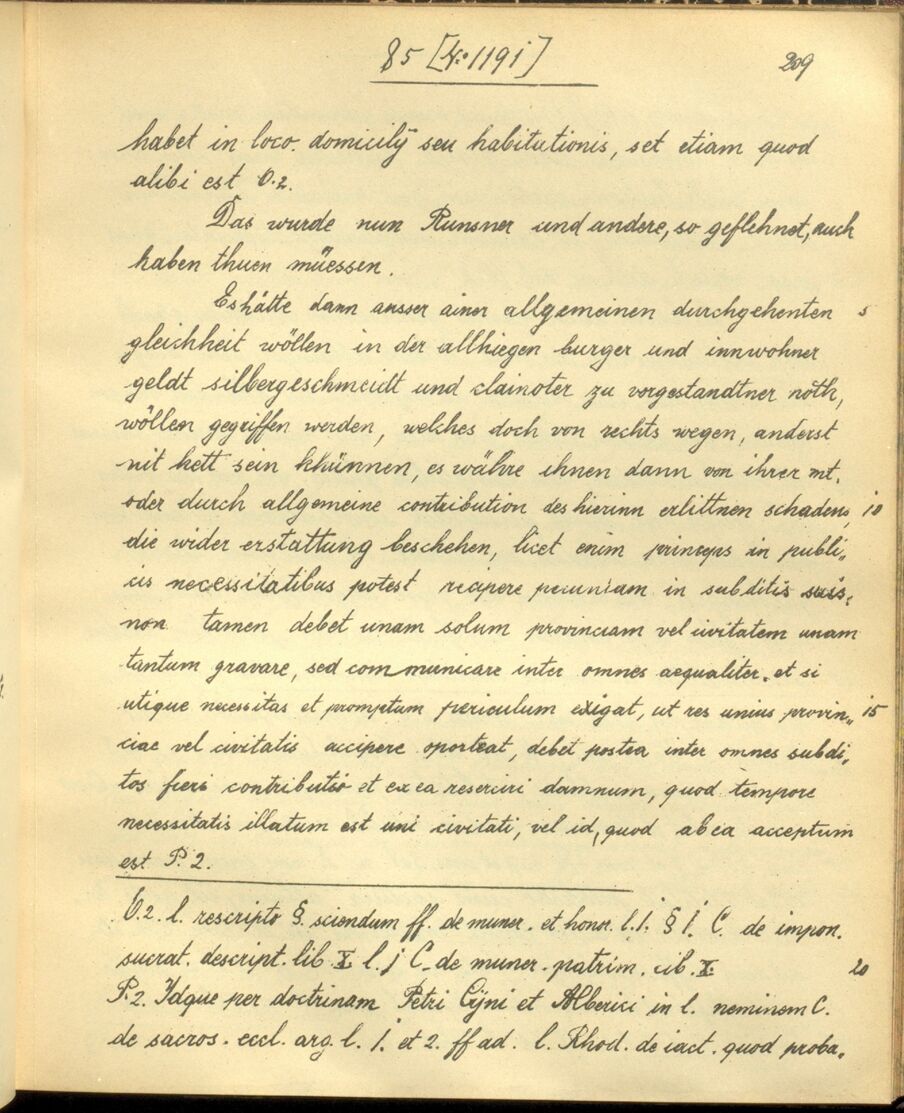 85 [N. 119i] 209
habet in loco. domicilij seu habitutionis, set etiam quod
alibi est O.2.
Das wurde nun Runsner und andere, so geflehnet, auch
haben thuen müessen.
Es hätte dann ausser ainer allgemeinen durchgehenten 5
gleichheit wöllen in der allhiegen burger und innwohner
geldt silbergeschmeidt und clainoter zu vorgestandtner nöth,
wöllen gegriffen werden, welches doch von rechts wegen, anderst
nit hett sein khünnen, es währe ihnen dann von ihrer mt.
oder durch allgemeine contribution des hierinn erlittnen schadens, i0
die wider erstattung beschehen, licet enim princeps in publi„
cis necessitatibus potest recipere pecuniam in subditis suis,
non tamen debet unam solum provinciam vel civitatem unam
tantum gravare, sed communicare inter omnes aequaliter. et si
utique necessitas et promptum periculum exigat, ut res unius provin„ i5
ciae vel civitatis accipere oporteat, debet postea inter omnes subdi„
tos fieri contributio et ex ea reserciri damnum, quod tempore
necessitatis illatum est uni civitati, vel id, quod ab ea acceptum
est P. 2.
O.2. l. rescripto §. sciendum ff. de muner. et honor. l. i. § i. C. de impon.
sucrat. descript. lib X l. j C. de muner. patrim. cib. X. 20
P.2. Idque per doctrinam Petri Cijni et Alberici in l. neminem C.
de sacros. eccl. arg. l. i. et 2. ff ad. l. Rhod. de iact. quod proba„